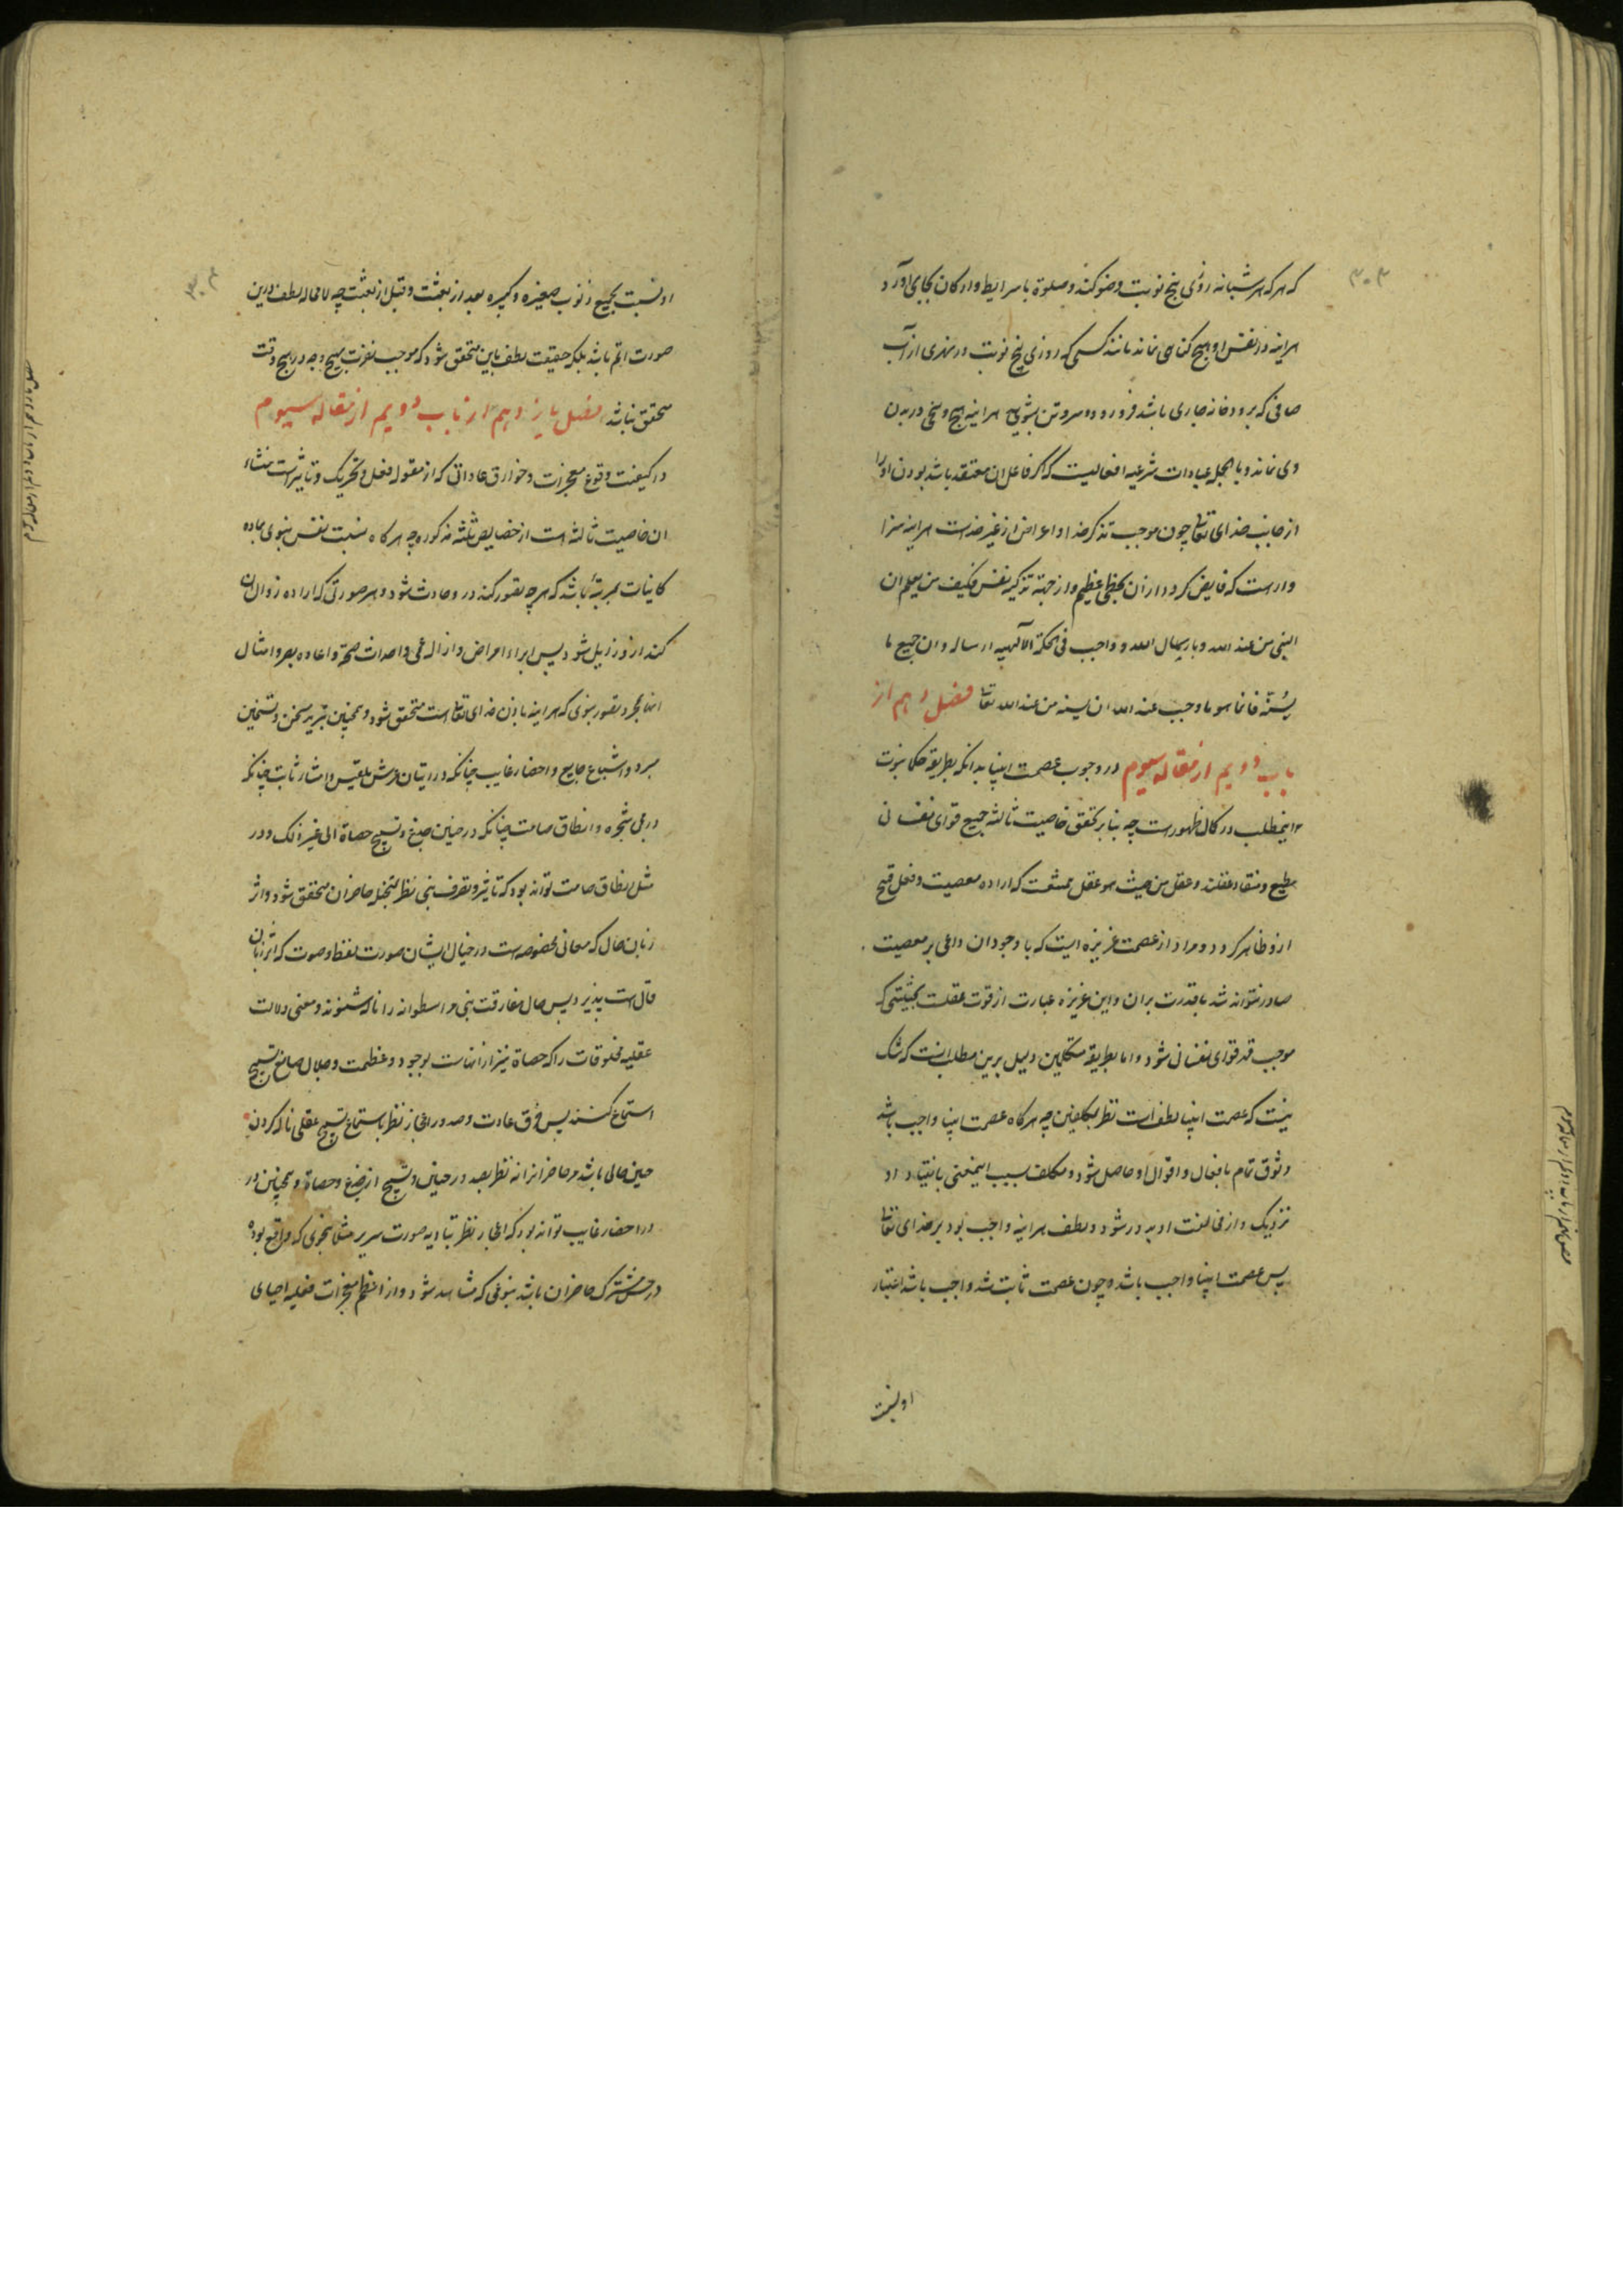 که هر که هر شبانه روزی پنج نوبت وضو کند و صلوة با شرایط و ارکان بجای آورد
هراینه در نفس او هیچ کناهی نماند مانند کسی که روزی پنج نوبت در نهری از آب
صافی که بر در خانه جاری باشد فرو رود و سر و تن بشوید هراینه هیچ وسخی در بدن
وی نماند و بالجمله عبادات شرعیه افعالیست که اکر فاعل ان معتقد باشد بودن او را
از جانب خدای تعالی چون موجب تذکر خدا و اعراض از غیر خداست هراینه سزا
وار است که فایض کردد از ان بحظی عظیم و از جهة تزکیه نفس فکیف من یعلم ان
النبی من عند الله و بارسال الله و واجب فی الحکمة الالهیه ارساله و ان جمیع ما
یسنّه فانما هو ما وجب عند الله ان یسنه من عند الله تعالی فصل دهم از
باب دویم از مقاله سیوم در وجوب عصمت انبیا بدانکه بطریقه حکما ثبوت
اینمطلب در کمال ظهورست چه بنا بر تحقق خاصیت ثالثه جمیع قوای نفسانی
مطیع و منقاد عقلند و عقل من حیث هو عقل ممتنعست که اراده معصیت و فعل قبیح
ازو ظاهر کردد و مراد از عصمت غریزه ایست که با وجود ان داعی بر معصیت
صادر نتواند شد با قدرت بران و این غریزه عبارت از قوت عقلست بحیثیتی که
موجب قهر قوای نفسانی شود و اما بطریقه متکلمین دلیل برین مطلب انست که شک
نیست که عصمت انبیا لطف است نظر بمکلفین چه هرکاه عصمت انبیا واجب باشد
وثوق تمام بافعال و اقوال او حاصل شود و مکلف بسبب اینمعنی بانقیاد او
نزدیک و از مخالفت او بدور شود و لطف هراینه واجب بود بر خدای تعالی
پس عصمت انبیا واجب باشد و چون عصمت ثابت شد واجب باشد اعتبار
او نسبت
او نسبت بجمیع ذنوب صغیره و کبیره بعد از بعثت و قبل از بعثت چه لا محاله لطف درین
صورت اتم باشد بلکه حقیقت لطف باین متحقق شود که موجب نفرت بهیچ وجه در هیچ وقت
متحقق نباشد فصل یازدهم از باب دویم از مقاله سیوم
در کیفیت وقوع معجزات و خوارق عاداتی که از مقوله فعل و تحریک و تاثیر است منشاء
ان خاصیت ثالثه است از خصایص ثلثه مذکوره چه هرکاه نسبت نفس نبوی بماده
کاینات بمرتبهٔ باشد که هر چه تصور کند درو حادث شود و هر صورتی که اراده زوال ان
کند ازو زایل شود پس ابراء امراض و ازاله عمی و احداث صحة و اعاده بصر و امثال
انها بمجرد تصور نبوی که هراینه باذن خدای تعالی است متحقق شود و همچنین تبرید سخن و تسخین
مبرد و اشباع جایع و احضار غایب چنانکه در اتیان عرش بلقیس و اشارت ثابت چنانکه
در رمی شجره و انطاق صامت چنانکه در حنین جذع و تسبیح حصاة الی غیر ذلک و در
مثل انطاق صامت تواند بود که تاثیر و تصرف نبی نظر بتخیل حاضران متحقق شود و اثر
زبان حال که معانی مخصوصه است در خیال ایشان صورت لفظ و صوت که اثر زبان
قال است پذیرد پس حال مفارقت نبی مر اسطوانه را ناله شنوند و معنی دلالت
عقلیه مخلوقات را که حصاة نیز از انهاست بوجود و عظمت و جلال صانع تسبیح
استماع کنند پس خرق عادت و صدور اعجاز نظر باستماع تسبیح عقلی ناله کردن
حین حالی باشد مر حاضرانرا نه نظر بصدور حنین و تسبیح از جذع و حصاة و همچنین در
در احضار غایب تواند بود که اعجاز نظر بتادیه صورت سریر مثلا بنحوی که واقع بوده
در حس مشترک حاضران باشد بنوعی که مشاهد شود و از اعظم معجزات فعلیه احیای